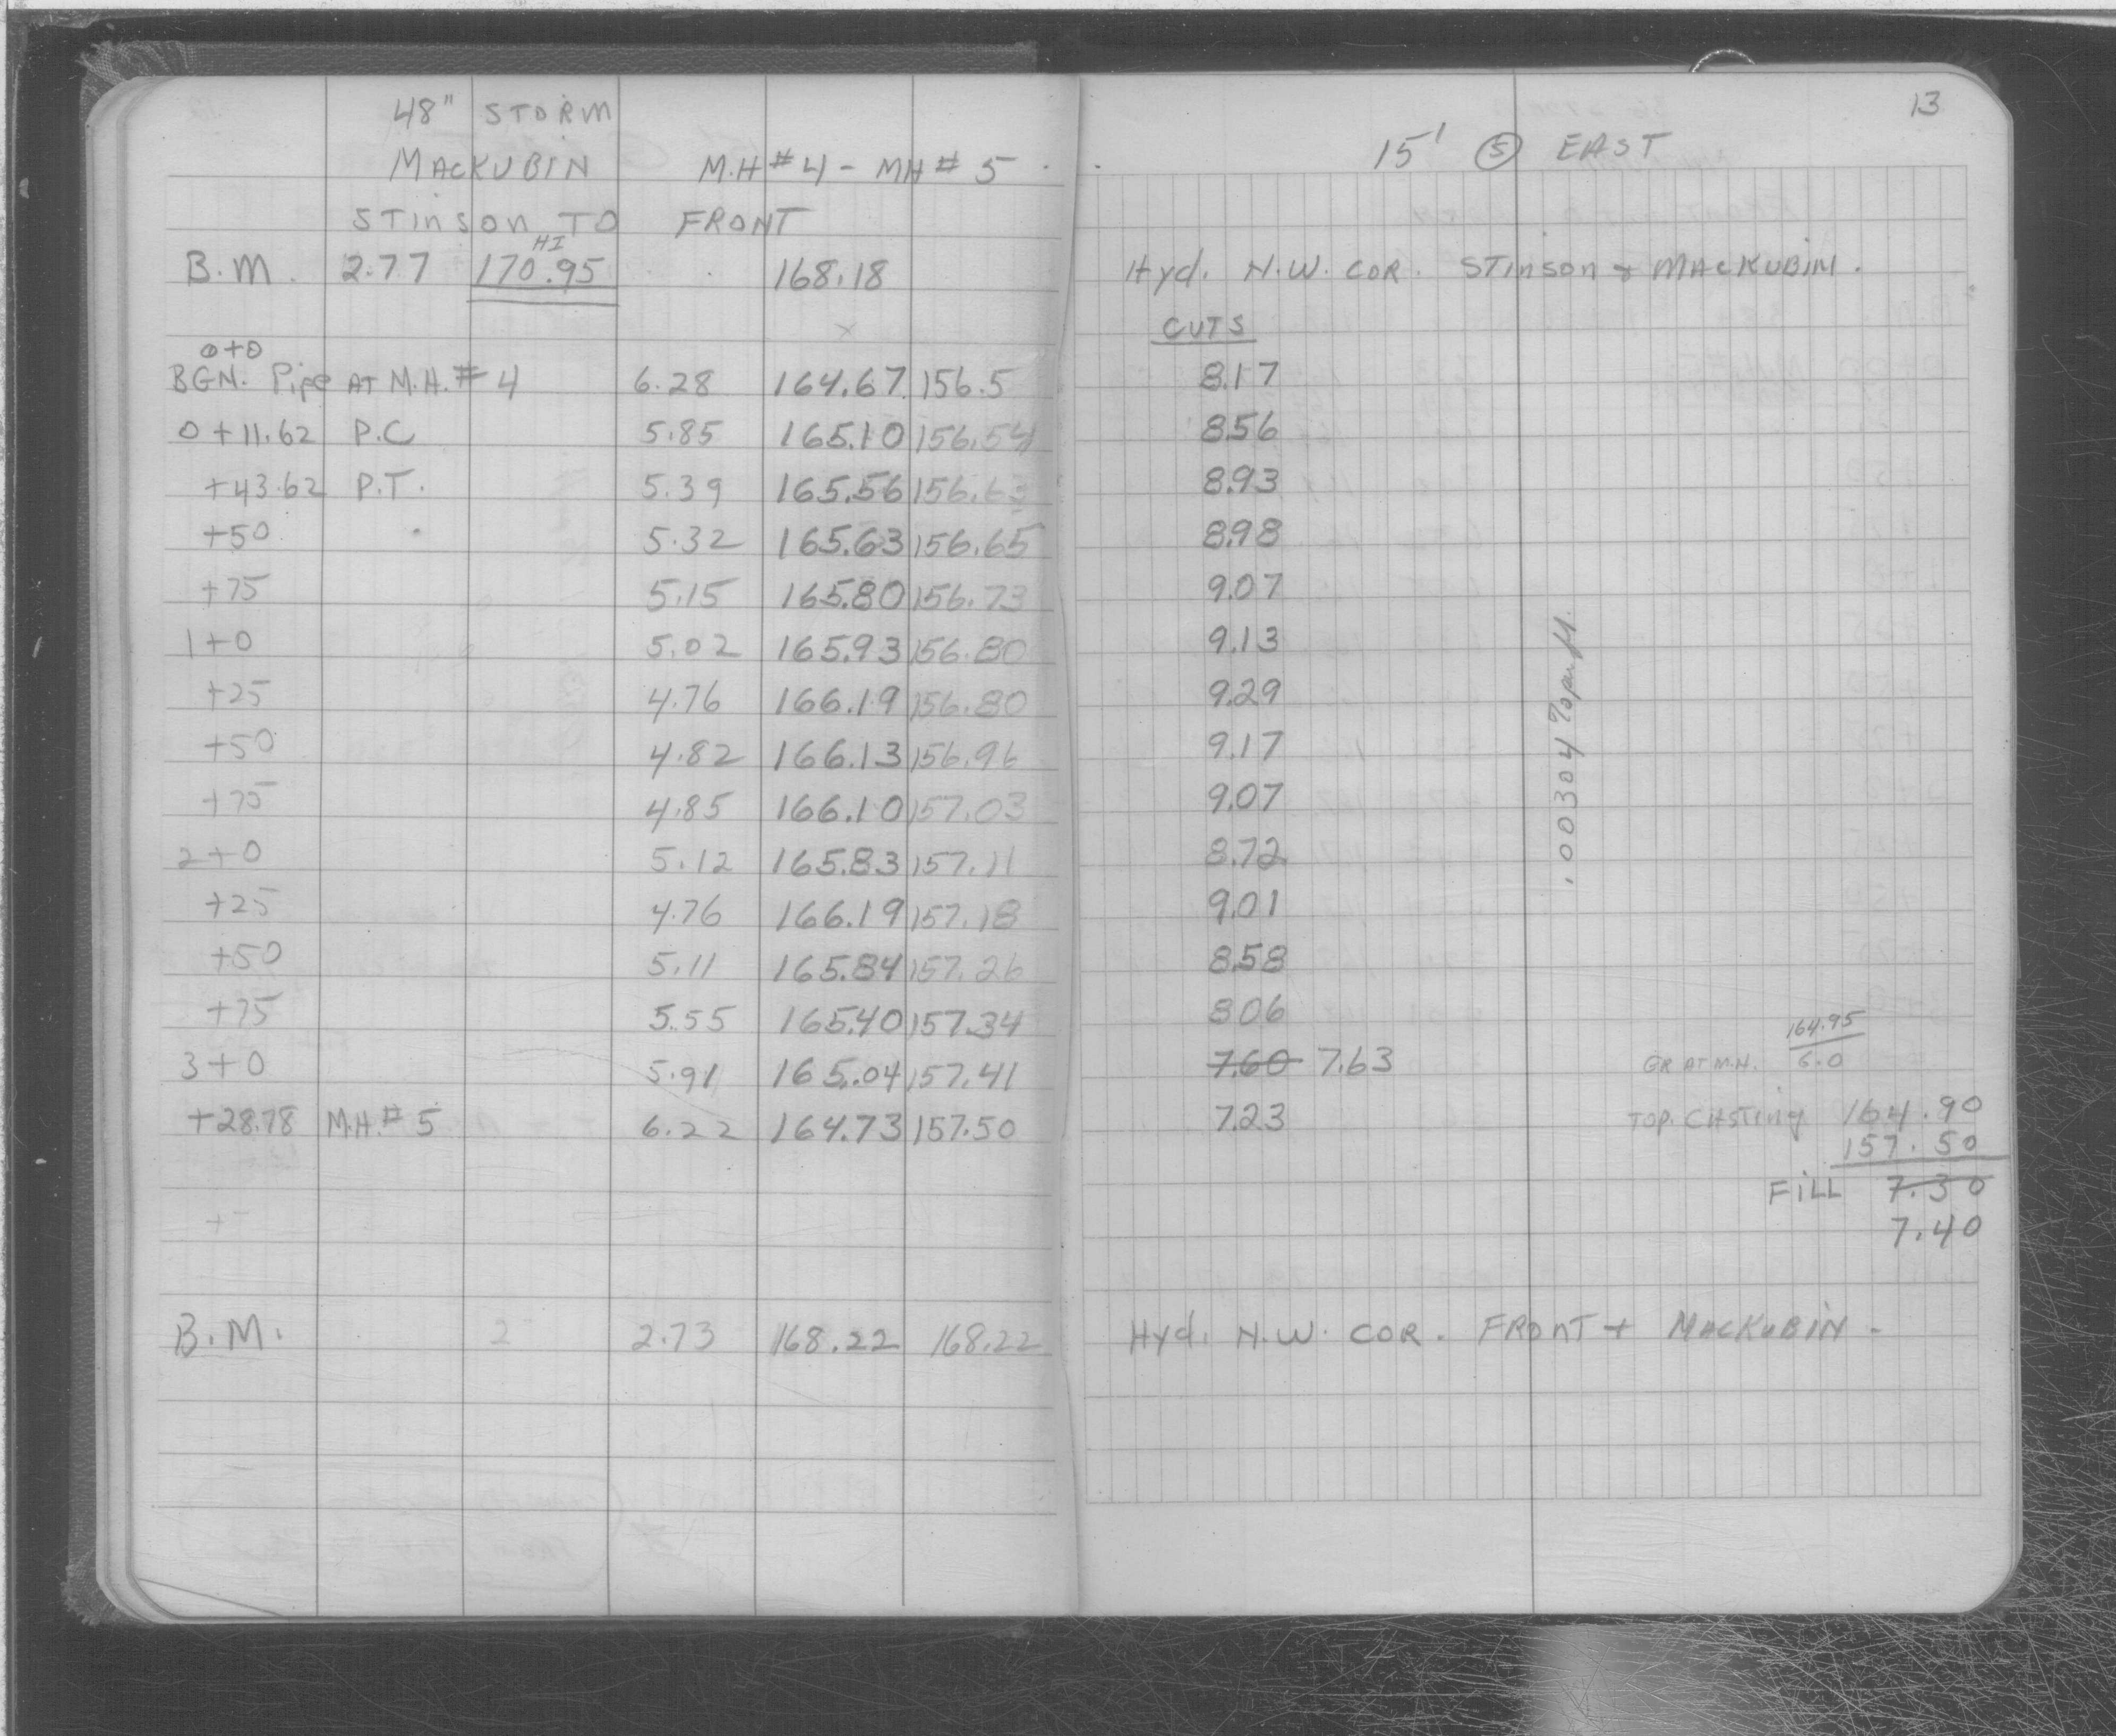 13
48" STORM
MACKUBIN M.H #4 - MH #5
15' Ⓢ EAST
STINSON TO FRONT
HI
B.M. 2.77 170.95 168.18 Hyd. N.W. COR. STINSON + MACKUBIN.
x
CUTS
0+0
BGN. Pipe AT M.H. #4 6.28 164.67 156.5 8.17
0+11.62 P.C 5.85 165.10 156.54 8.56
+43.62 P.T. 5.39 165.56 156.63 8.93
+50 5.32 165.63 156.65 8.98
+75 5.15 165.80 156.73 9.07
1+0 5.02 165.93 156.80 9.13
+25 4.76 166.19 156.80 9.29
+50 4.82 166.13 156.96 9.17
+75 4.85 166.10 157.03 9.07
2+0 5.12 165.83 157.11 8.72
+25 4.76 166.19 157.18 9.01
+50 5.11 165.84 157.26 8.58
+75 5.55 165.40 157.34 8.06
.00304 % per ft.
164.95
3+0 5.91 165.04 157.41 7.60 7.63 GR AT M.H. 6.0
+28.78 M.H. #5 6.22 164.73 157.50 7.23 TOP. CASTING 164.90
157.50
FILL 7.30
7.40
B.M. 2 2.73 168.22 168.22 Hyd. N.W. COR. FRONT + MACKUBIN.